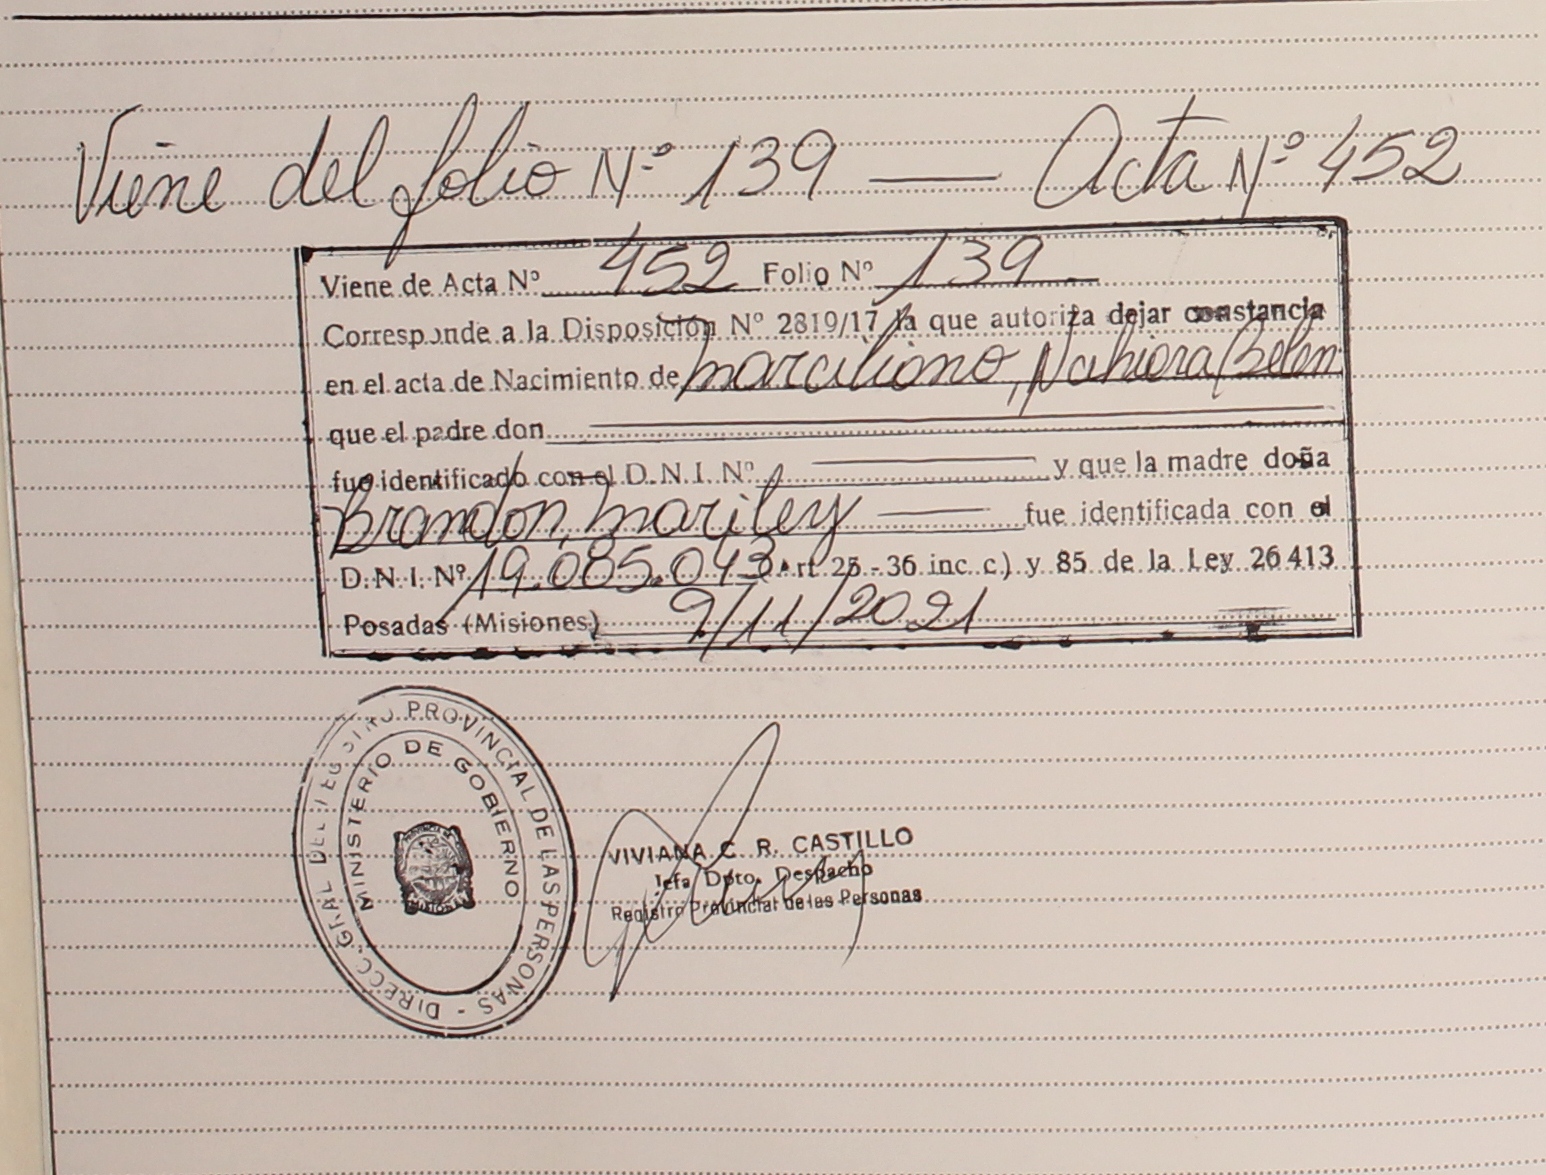 Viene del folio N.º 139 — Acta N.º 452
Viene de Acta Nº 452 Folio Nº 139
Corresponde a la Disposición Nº 2819/17 la que autoriza dejar constancia
en el acta de Nacimiento de Marciliano, Nahiara Belen
que el padre don
fue identificado con el D.N.I. Nº y que la madre doña
Brandon, Mariley — fue identificada con el
D.N.I. Nº 19.085.043 Art 25 - 36 inc c.) y 85 de la Ley 26413
Posadas (Misiones) 9/11/2021
DIRECC. GRAL DEL REGISTRO PROVINCIAL DE LAS PERSONAS -
MINISTERIO DE GOBIERNO
VIVIANA C. R. CASTILLO
Jefa Dpto. Despacho
Registro Provincial de las Personas